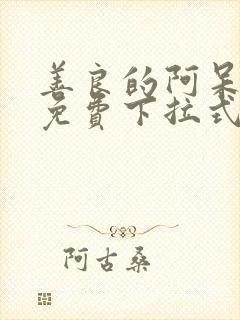 善良的阿呆
免費下拉式
阿古桑